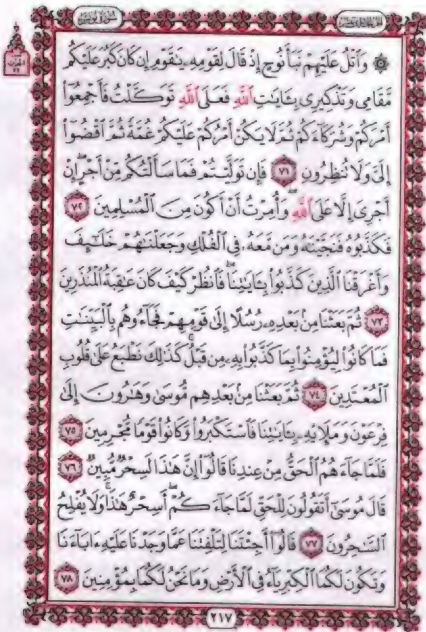 سورة يونس
الجزء الحادي عشر
۞ وَٱتْلُ عَلَيْهِمْ نَبَأَ نُوحٍ إِذْ قَالَ لِقَوْمِهِۦ يَٰقَوْمِ إِن كَانَ كَبُرَ عَلَيْكُم
مَّقَامِى وَتَذْكِيرِى بِـَٔايَٰتِ ٱللَّهِ فَعَلَى ٱللَّهِ تَوَكَّلْتُ فَأَجْمِعُوٓا۟
أَمْرَكُمْ وَشُرَكَآءَكُمْ ثُمَّ لَا يَكُنْ أَمْرُكُمْ عَلَيْكُمْ غُمَّةً ثُمَّ ٱقْضُوٓا۟
إِلَىَّ وَلَا تُنظِرُونِ ٧١ فَإِن تَوَلَّيْتُمْ فَمَا سَأَلْتُكُم مِّنْ أَجْرٍ إِنْ
أَجْرِىَ إِلَّا عَلَى ٱللَّهِ وَأُمِرْتُ أَنْ أَكُونَ مِنَ ٱلْمُسْلِمِينَ ٧٢
فَكَذَّبُوهُ فَنَجَّيْنَٰهُ وَمَن مَّعَهُۥ فِى ٱلْفُلْكِ وَجَعَلْنَٰهُمْ خَلَٰٓئِفَ
وَأَغْرَقْنَا ٱلَّذِينَ كَذَّبُوا۟ بِـَٔايَٰتِنَا فَٱنظُرْ كَيْفَ كَانَ عَٰقِبَةُ ٱلْمُنذَرِينَ
٧٣ ثُمَّ بَعَثْنَا مِنۢ بَعْدِهِۦ رُسُلًا إِلَىٰ قَوْمِهِمْ فَجَآءُوهُم بِٱلْبَيِّنَٰتِ
فَمَا كَانُوا۟ لِيُؤْمِنُوا۟ بِمَا كَذَّبُوا۟ بِهِۦ مِن قَبْلُ كَذَٰلِكَ نَطْبَعُ عَلَىٰ قُلُوبِ
ٱلْمُعْتَدِينَ ٧٤ ثُمَّ بَعَثْنَا مِنۢ بَعْدِهِم مُّوسَىٰ وَهَٰرُونَ إِلَىٰ
فِرْعَوْنَ وَمَلَإِي۟هِۦ بِـَٔايَٰتِنَا فَٱسْتَكْبَرُوا۟ وَكَانُوا۟ قَوْمًا مُّجْرِمِينَ ٧٥
فَلَمَّا جَآءَهُمُ ٱلْحَقُّ مِنْ عِندِنَا قَالُوٓا۟ إِنَّ هَٰذَا لَسِحْرٌ مُّبِينٌ ٧٦
قَالَ مُوسَىٰٓ أَتَقُولُونَ لِلْحَقِّ لَمَّا جَآءَكُمْ أَسِحْرٌ هَٰذَا وَلَا يُفْلِحُ
ٱلسَّٰحِرُونَ ٧٧ قَالُوٓا۟ أَجِئْتَنَا لِتَلْفِتَنَا عَمَّا وَجَدْنَا عَلَيْهِ ءَابَآءَنَا
وَتَكُونَ لَكُمَا ٱلْكِبْرِيَآءُ فِى ٱلْأَرْضِ وَمَا نَحْنُ لَكُمَا بِمُؤْمِنِينَ ٧٨
٢١٧